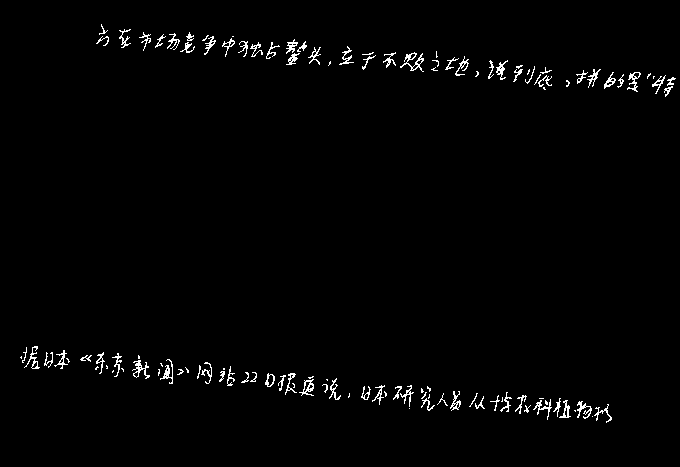 方在市场竞争中独占鳌头,立于不败之地,说到底,拼的是“特
据日本《东京新闻》网站22日报道说,日本研究人员从十字花科植物拟